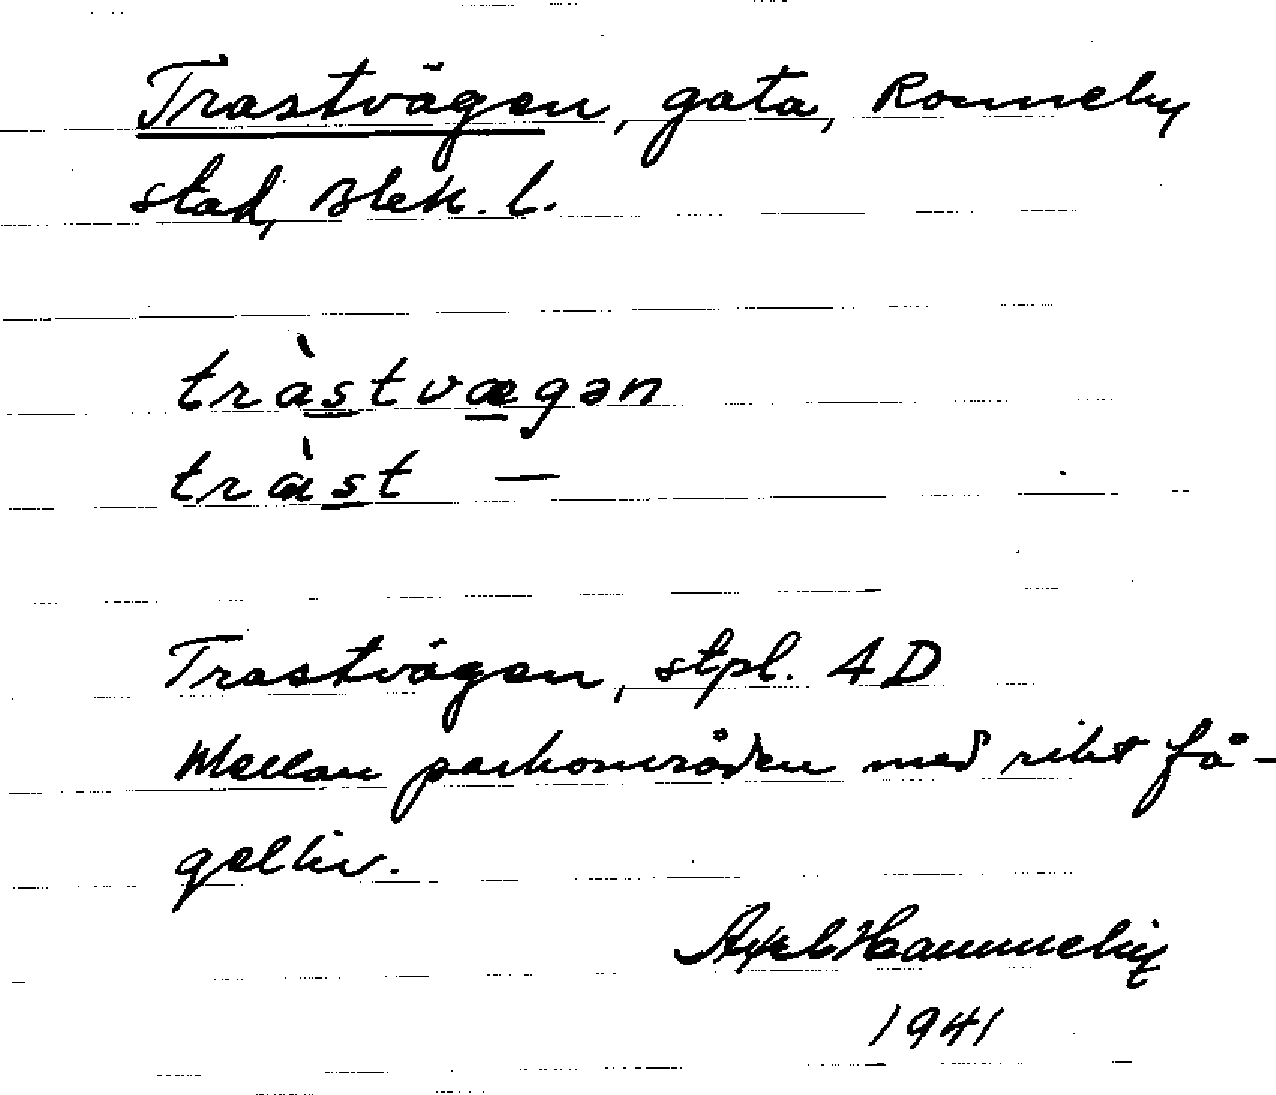 Trastvägen, gata, Ronneby
stad, Blek. l.
tràstvægən
tràst —
Trastvägen, stpl. 4D
Mellan parkområden med rikt få-
gelliv.
Axel Hammeby
1941